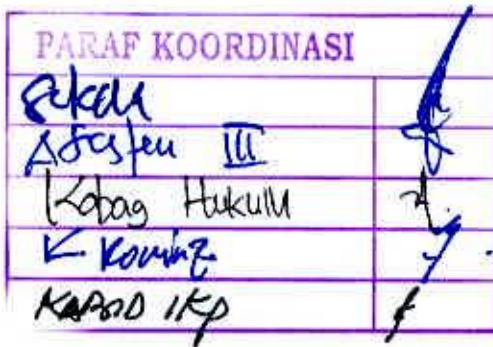 PARAF KOORDINASI
Sekda
Asisten III
Kabag Hukum
K. Kominfo
KABID IKP